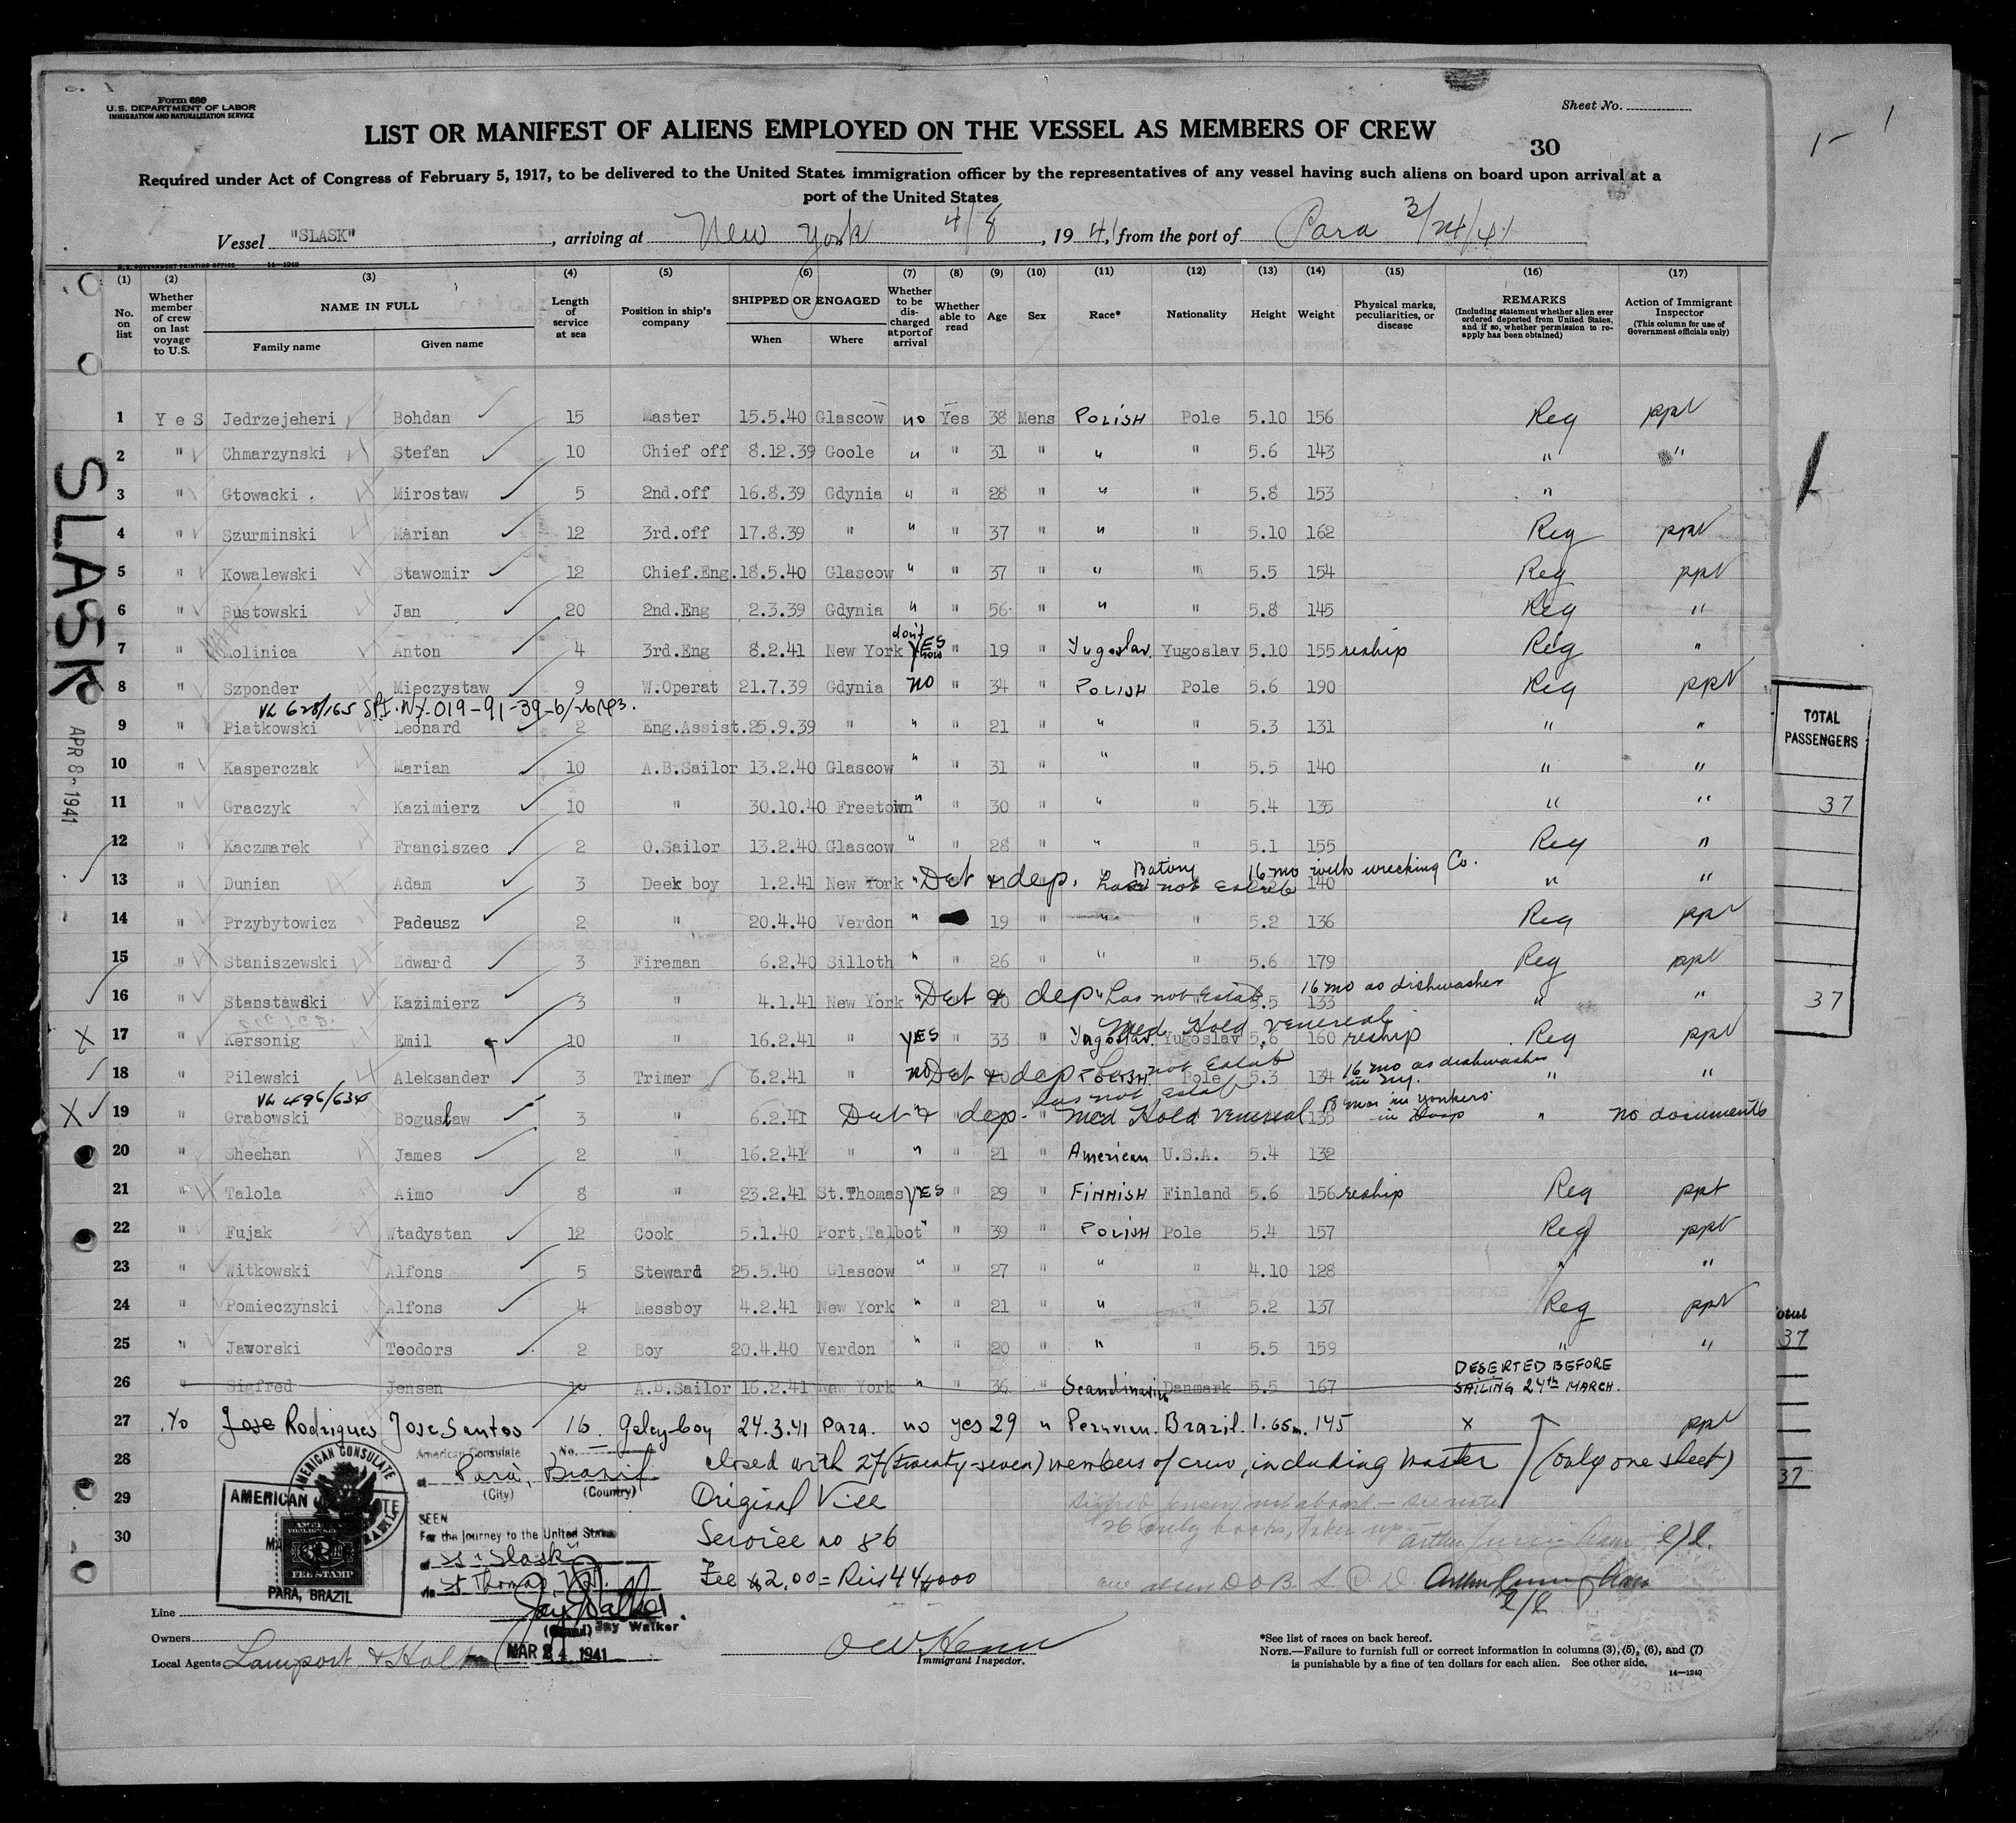 Form 680
U.S. DEPARTMENT OF LABOR
IMMIGRATION AND NATURALIZATION SERVICE
Sheet No.
LIST OR MANIFEST OF ALIENS EMPLOYED ON THE VESSEL AS MEMBERS OF CREW
30
Required under Act of Congress of February 5, 1917, to be delivered to the United States immigration officer by the representatives of any vessel having such aliens on board upon arrival at a
port of the United States
Vessel "SLASK", arriving at New York 4/8, 1941, from the port of Para 3/24/41
U.S. GOVERNMENT PRINTING OFFICE 14-1240
(1) (2) (3) (4) (5) (6) (7) (8) (9) (10) (11) (12) (13) (14) (15) (16) (17)
No. on list
Whether member of crew on last voyage to U.S.
NAME IN FULL
Family name Given name
Length of service at sea
Position in ship's company
SHIPPED OR ENGAGED
When Where
Whether to be discharged at port of arrival
Whether able to read
Age
Sex
Race*
Nationality
Height
Weight
Physical marks, peculiarities, or disease
REMARKS
(Including statement whether alien ever ordered deported from United States, and if so, whether permission to reapply has been obtained)
Action of Immigrant Inspector
(This column for use of Government officials only)
1 YeS Jedrzejeheri Bohdan 15 Master 15.5.40 Glascow no Yes 38 Mens POLISH Pole 5.10 156 Reg ppt
2 " Chmarzynski Stefan 10 Chief off 8.12.39 Goole " " 31 " " " 5.6 143 " "
3 " Gtowacki. Mirostaw 5 2nd.off 16.8.39 Gdynia " " 28 " " " 5.8 153 "
4 " Szurminski Marian 12 3rd.off 17.8.39 " " " 37 " " " 5.10 162 Reg ppt
5 " Kowalewski Stawomir 12 Chief.Eng. 18.5.40 Glascow " " 37 " " " 5.5 154 Reg ppt
6 " Bustowski Jan 20 2nd.Eng 2.3.39 Gdynia " " 56 " " " 5.8 145 Reg "
7 " Molinica Anton 4 3rd.Eng 8.2.41 New York don't YES " 19 " Yugoslav. Yugoslav 5.10 155 reship Reg "
8 " Szponder Mieczystaw 9 W.Operat 21.7.39 Gdynia no " 34 " POLISH Pole 5.6 190 Reg ppt
9 " Piatkowski Leonard 2 Eng.Assist. 25.9.39 " " " 21 " " " 5.3 131 " "
10 " Kasperczak Marian 10 A.B.Sailor 13.2.40 Glascow " " 31 " " " 5.5 140 " "
11 " Graczyk Kazimierz 10 " 30.10.40 Freetown " " 30 " " " 5.4 135 " "
12 " Kaczmarek Franciszec 2 O.Sailor 13.2.40 Glascow " " 28 " " " 5.1 155 Reg "
13 " Dunian Adam 3 Deek boy 1.2.41 New York " Det & dep. Batory has not Estab 16 mo with wrecking Co. 140 " "
14 " Przybytowicz Padeusz 2 " 20.4.40 Verdon " 19 " " 5.2 136 Reg ppt
15 " Staniszewski Edward 3 Fireman 6.2.40 Silloth " " 26 " " " 5.6 179 Reg ppt
16 " Stanstawski Kazimierz 3 " 4.1.41 New York " Det & dep " has not Estab 5.5 133 16 mo as dishwasher " "
17 " Kersonig Emil 10 " 16.2.41 " YES " 33 " Yugoslav. Yugoslav 5.6 160 Med Hold Venereal reship Reg ppt
18 " Pilewski Aleksander 3 Trimer 6.2.41 " no Det & dep POLISH. has not Estab Pole 5.3 134 16 mo as dishwasher in NY. " "
19 " Grabowski Boguslaw 3 " 6.2.41 " Det & dep. has not Estab Med Hold Venereal 135 " no documents
20 " Sheehan James 2 " 16.2.41 " " " 21 " American U.S.A. 5.4 132
21 " Talola Aimo 8 " 23.2.41 St.Thomas YES " 29 " FINNISH Finland 5.6 156 reship Reg ppt
22 " Fujak Wtadystan 12 Cook 5.1.40 Port,Talbot " " 39 " POLISH Pole 5.4 157 Reg ppt
23 " Witkowski Alfons 5 Steward 25.5.40 Glascow " " 27 " " " 4.10 128 " "
24 " Pomieczynski Alfons 4 Messboy 4.2.41 New York " " 21 " " " 5.2 137 Reg ppt
25 " Jaworski Teodors 2 Boy 20.4.40 Verdon " " 20 " " " 5.5 159 " "
26 " Sigfred Jensen 10 A.B.Sailor 16.2.41 New York " " 36 " Scandinavian Danmark 5.5 167 DESERTED BEFORE SAILING 24th MARCH.
27 No Jose Rodrigues Jose Santos 16 Galey-boy 24.3.41 Para. no yes 29 " Peruvian. Brazil. 1.65m. 145 x ppt
28 closed with 27 (twenty-seven) members of crew, including master (only one sheet)
29 Original Vise
30 Service no 86
Fee $2,00 = Reis 44$000
SLASK
APR 8 - 1941
TOTAL PASSENGERS
37
37
Total
37
37
American Consulate No.
at Para, Brazil
(City) (Country)
SEEN
For the journey to the United States
SS "Slask"
via St Thomas
Jay Walker
MAR 24 1941
AMERICAN CONSULATE
FEE STAMP
PARA, BRAZIL
Line
Owners
Local Agents Lamport & Holt
Immigrant Inspector.
*See list of races on back hereof.
NOTE.—Failure to furnish full or correct information in columns (3), (5), (6), and (7)
is punishable by a fine of ten dollars for each alien. See other side.
14-1240